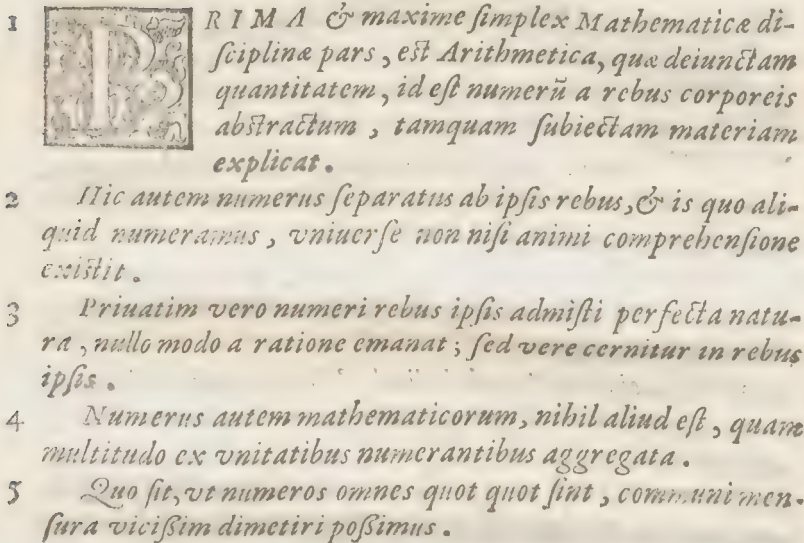 1 PRIMA & maxime ſimplex Mathematicæ di-
ſciplinæ pars, eſt Arithmetica, quæ deiunctam
quantitatem, id eſt numerũ a rebus corporeis
abſtractum, tamquam ſubiectam materiam
explicat.
2 Hic autem numerus ſeparatus ab ipſis rebus, & is quo ali-
quid numeramus, vniuerſe non niſi animi comprehenſione
exiſtit.
3 Priuatim vero numeri rebus ipſis admiſti perfecta natu-
ra, nullo modo a ratione emanat; ſed vere cernitur in rebus
ipſis.
4 Numerus autem mathematicorum, nihil aliud eſt, quam
multitudo ex vnitatibus numerantibus aggregata.
5 Quo fit, vt numeros omnes quot quot ſint, communi men-
ſura viciſſim dimetiri poſſimus.